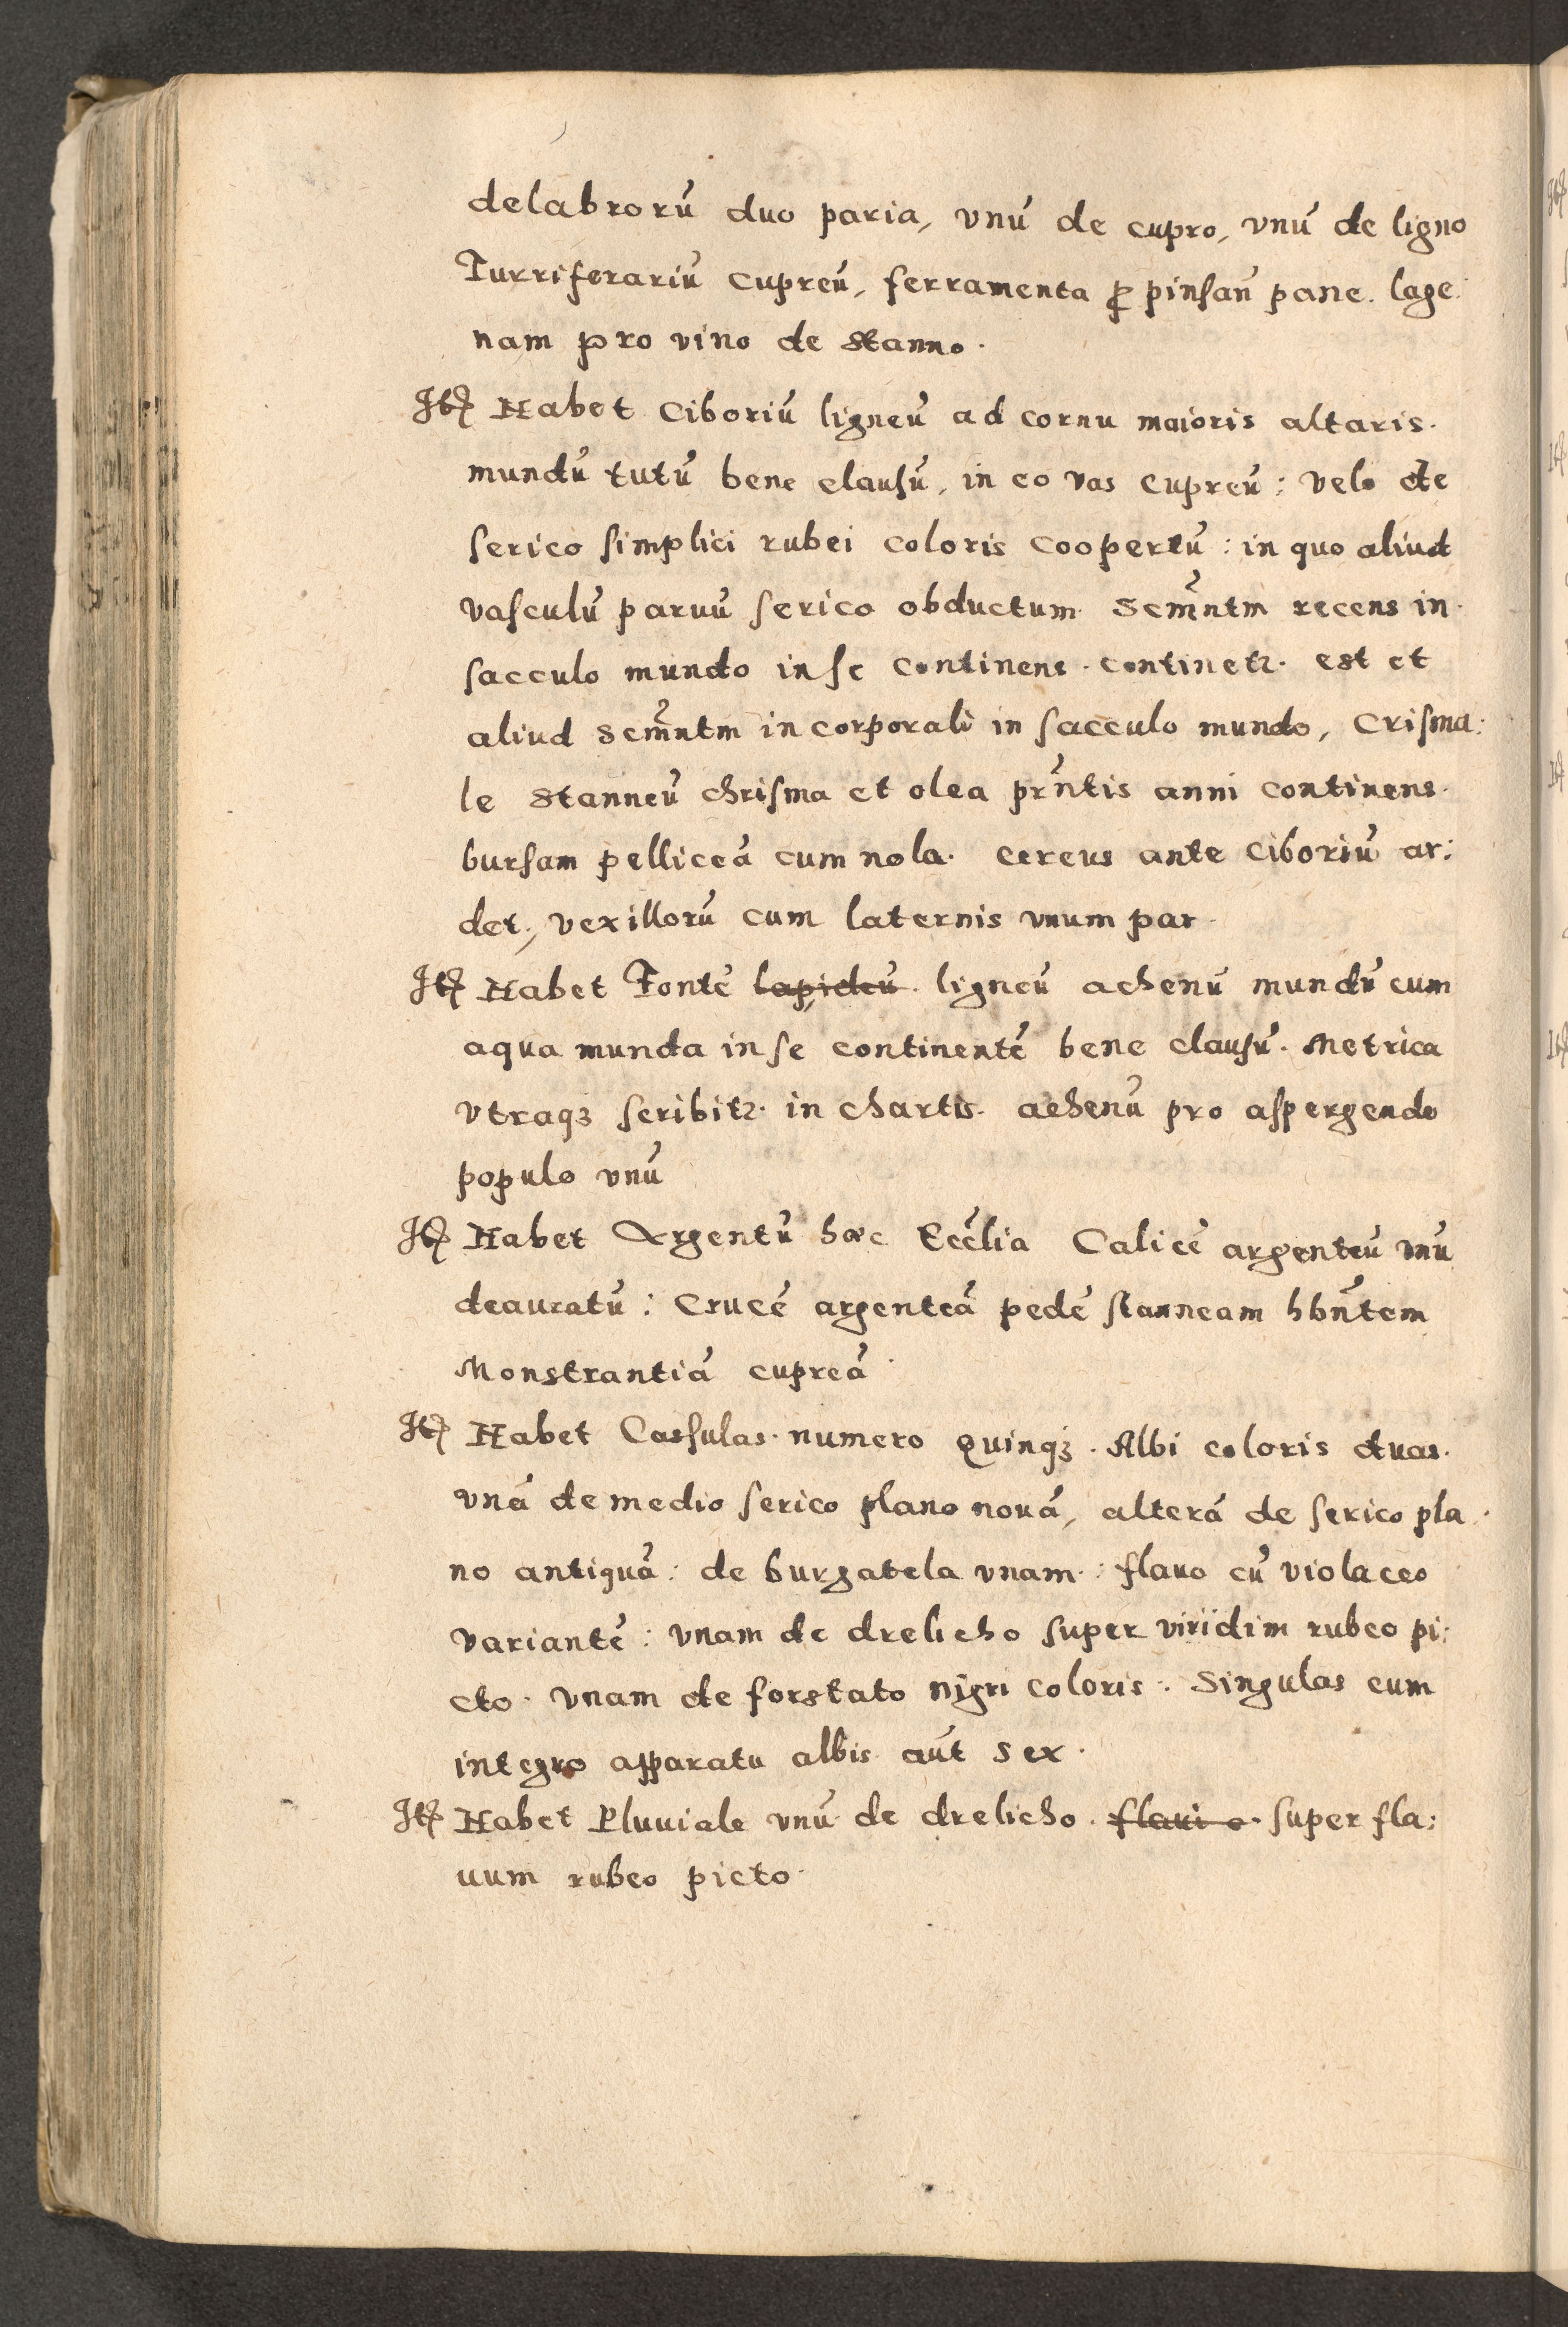 delabrorū duo paria, vnū de cupro, vnū de ligno
Turriferariū cupreū, ferramenta ꝓ pinsan̄ pane. lage:
nam pro vino de stanno.
Itꝫ Habet Ciboriū ligneū ad cornu maioris altaris.
mundū tutū bene clausū, in eo vas cupreū: velo de
serico simplici rubei coloris coopertū: in quo aliud
vasculū paruū serico obductum. Scm̄ntm recens in
sacculo mundo in se continens. continetr. est et
aliud scm̄ntm in corporali in sacculo mundo, Crisma:
le stanneū chrisma et olea prn̄tis anni continens.
bursam pelliceā cum nola. cereus ante Ciboriū ar:
det, vexillorū cum laternis vnum par.
Itꝫ Habet Fontē lapideū. ligneū aehenū mundū cum
aqua munda in se continentē bene clausū. Metrica
vtraqꝫ scribitr. in chartis. aehenū pro aspergendo
populo vnū
Itꝫ Habet Argentū haec Eccl̄ia Calicē argenteū vnū
deauratū: Crucē argenteā pedē stanneam hbn̄tem
Monstrantiā cupreā.
Itꝫ Habet Cassulas. numero Quinqꝫ. Albi coloris duas.
vnā de medio serico plano nouā, alterā de serico pla
no antiquā: de burgatela vnam: flauo cū violaceo
variantē: vnam de drelicho super viridim rubeo pi:
cto. vnam de forstato nigri coloris. Singulas cum
integro apparatu albis aūt sex.
Itꝫ Habet Pluuiale vnū de drelicho. flaui o. super fla:
uum rubeo picto.